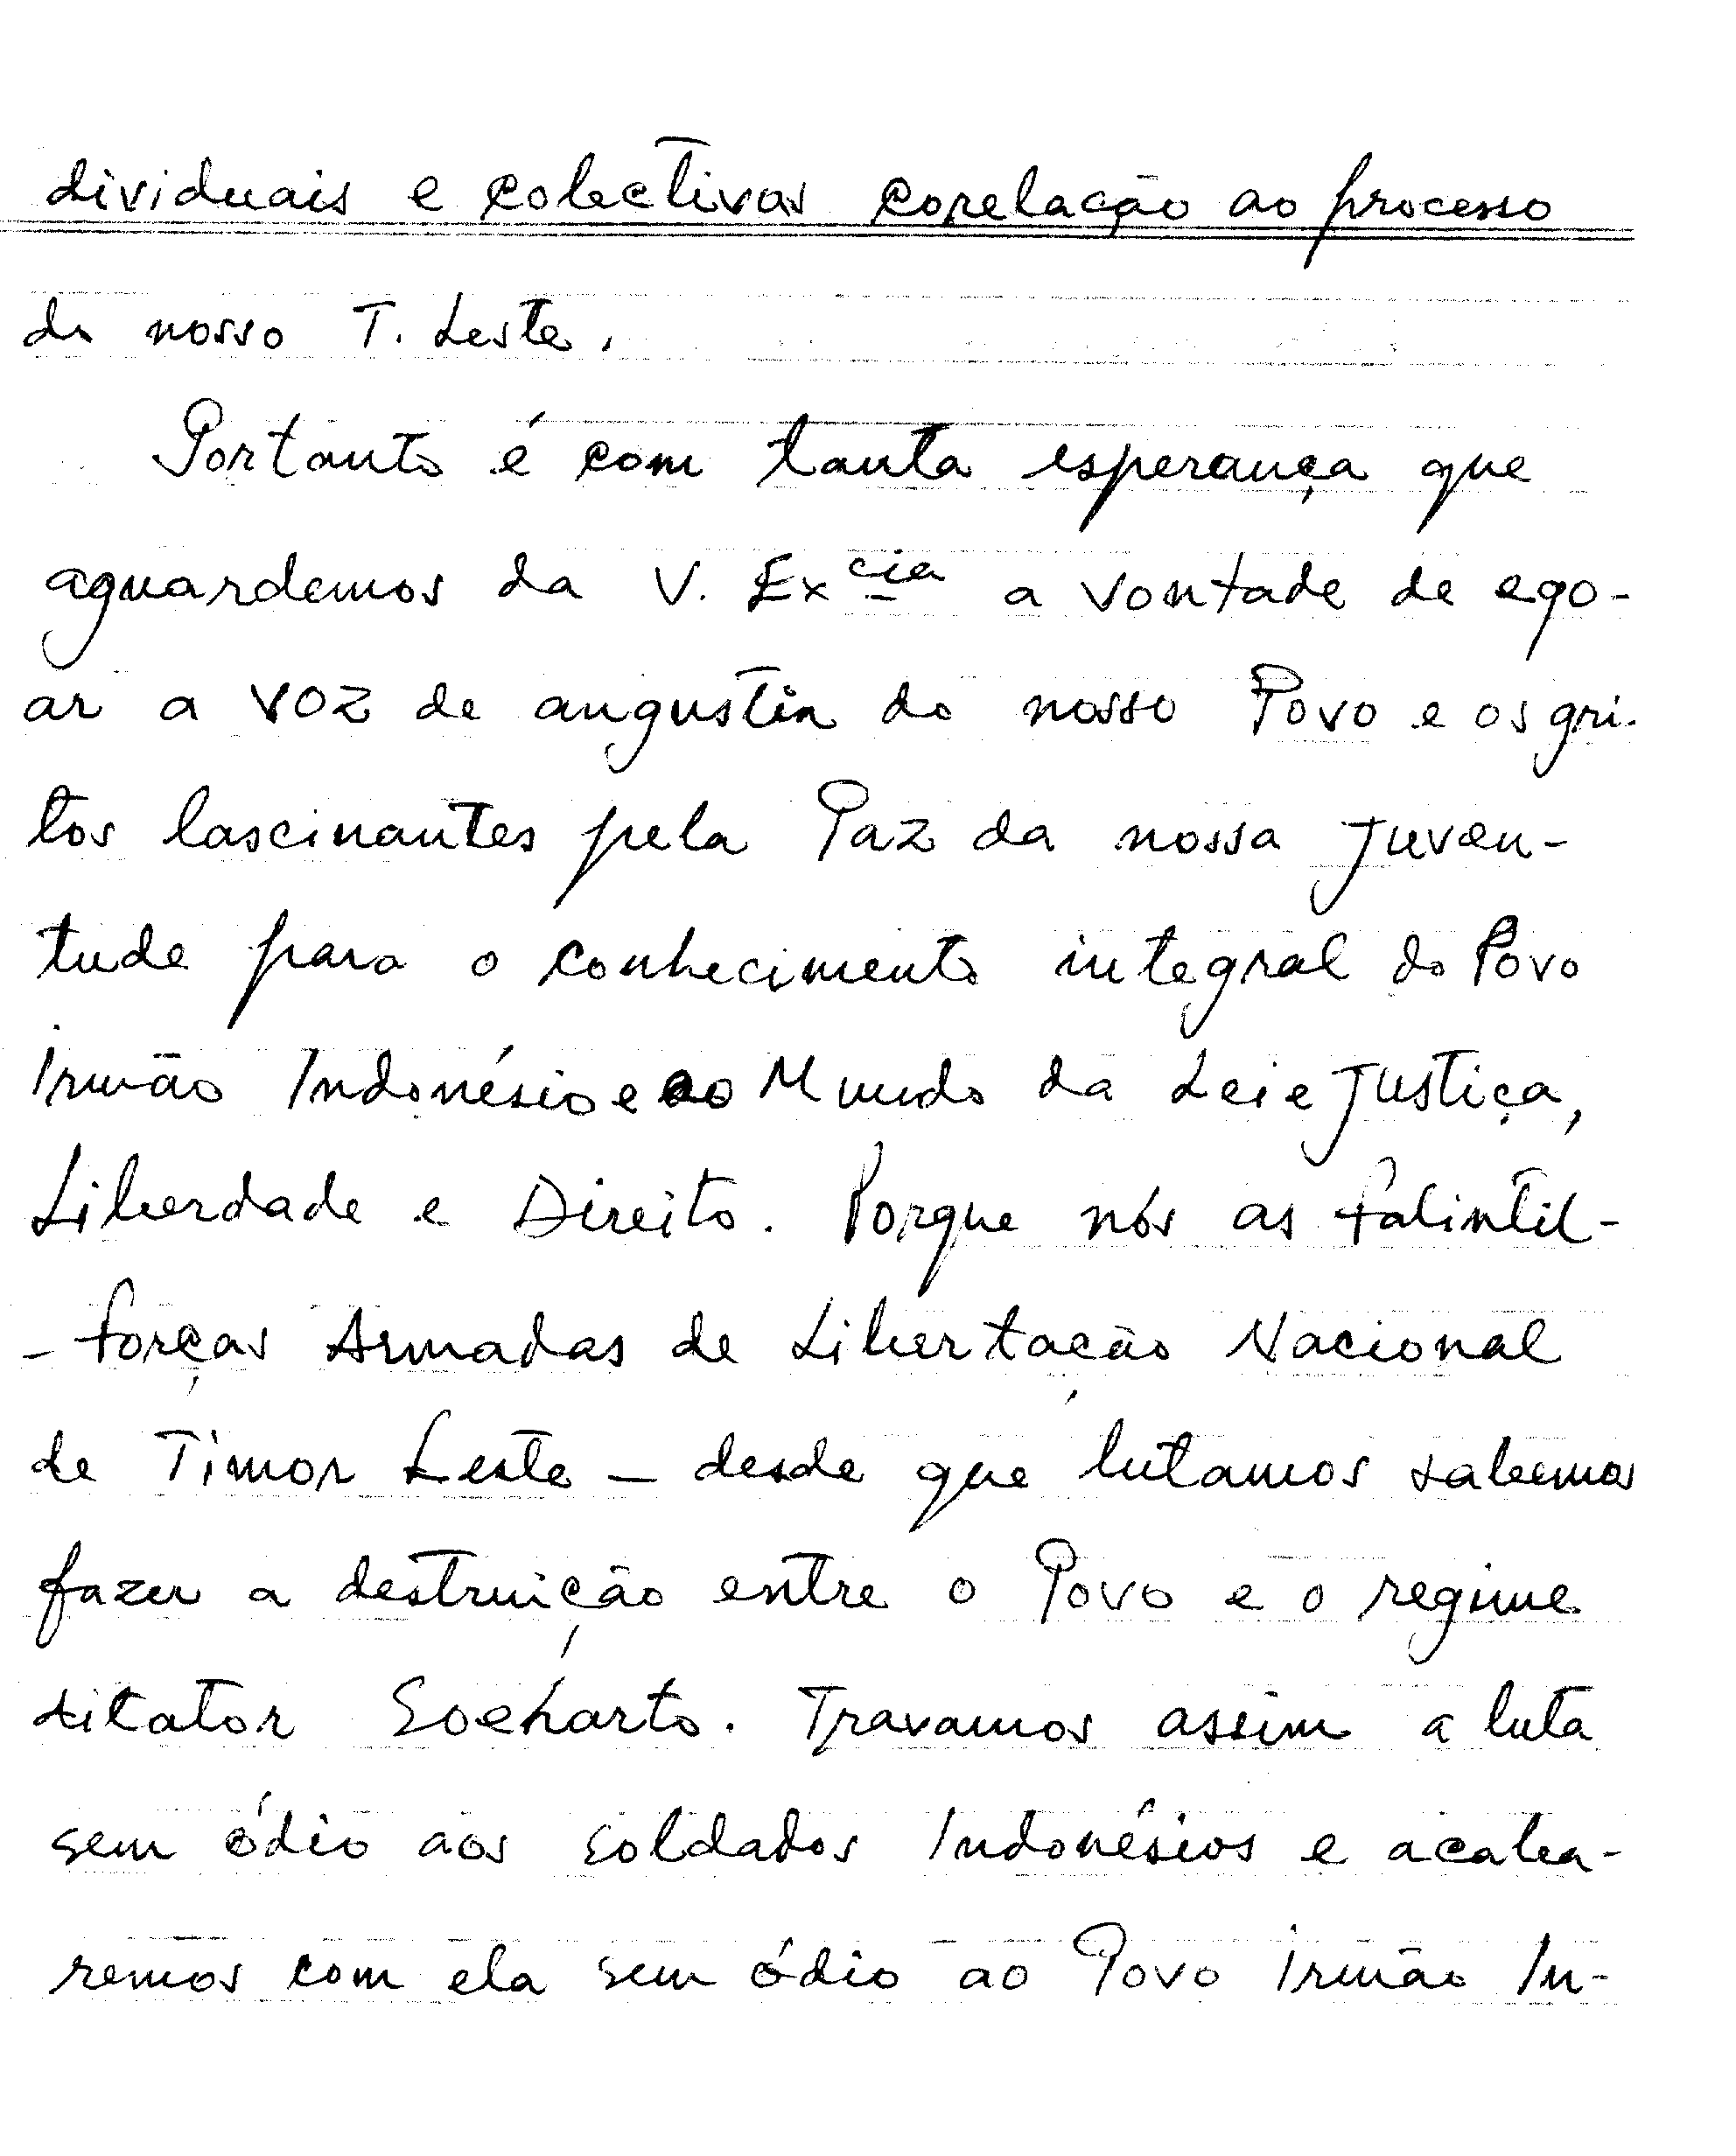 dividuais e colectivas corelação ao processo
do nosso T. Leste.
Portanto é com tanta esperança que
aguardemos da V. Excia a vontade de eqo-
ar a voz de angustia do nosso Povo e os gri-
tos lascinantes pela Paz da nossa Juven-
tude para o conhecimento integral do Povo
Irmão Indonésio e ao Mundo da Lei e Justiça,
Liberdade e Direito. Porque nós as Falintil-
- Forças Armadas de Libertação Nacional
de Timor Leste - desde que lutamos sabemos
fazer a destruição entre o Povo e o regime
ditator Soeharto. Travamos assim a luta
sem ódio aos soldados Indonésios e acaba-
remos com ela sem ódio ao Povo Irmão In-